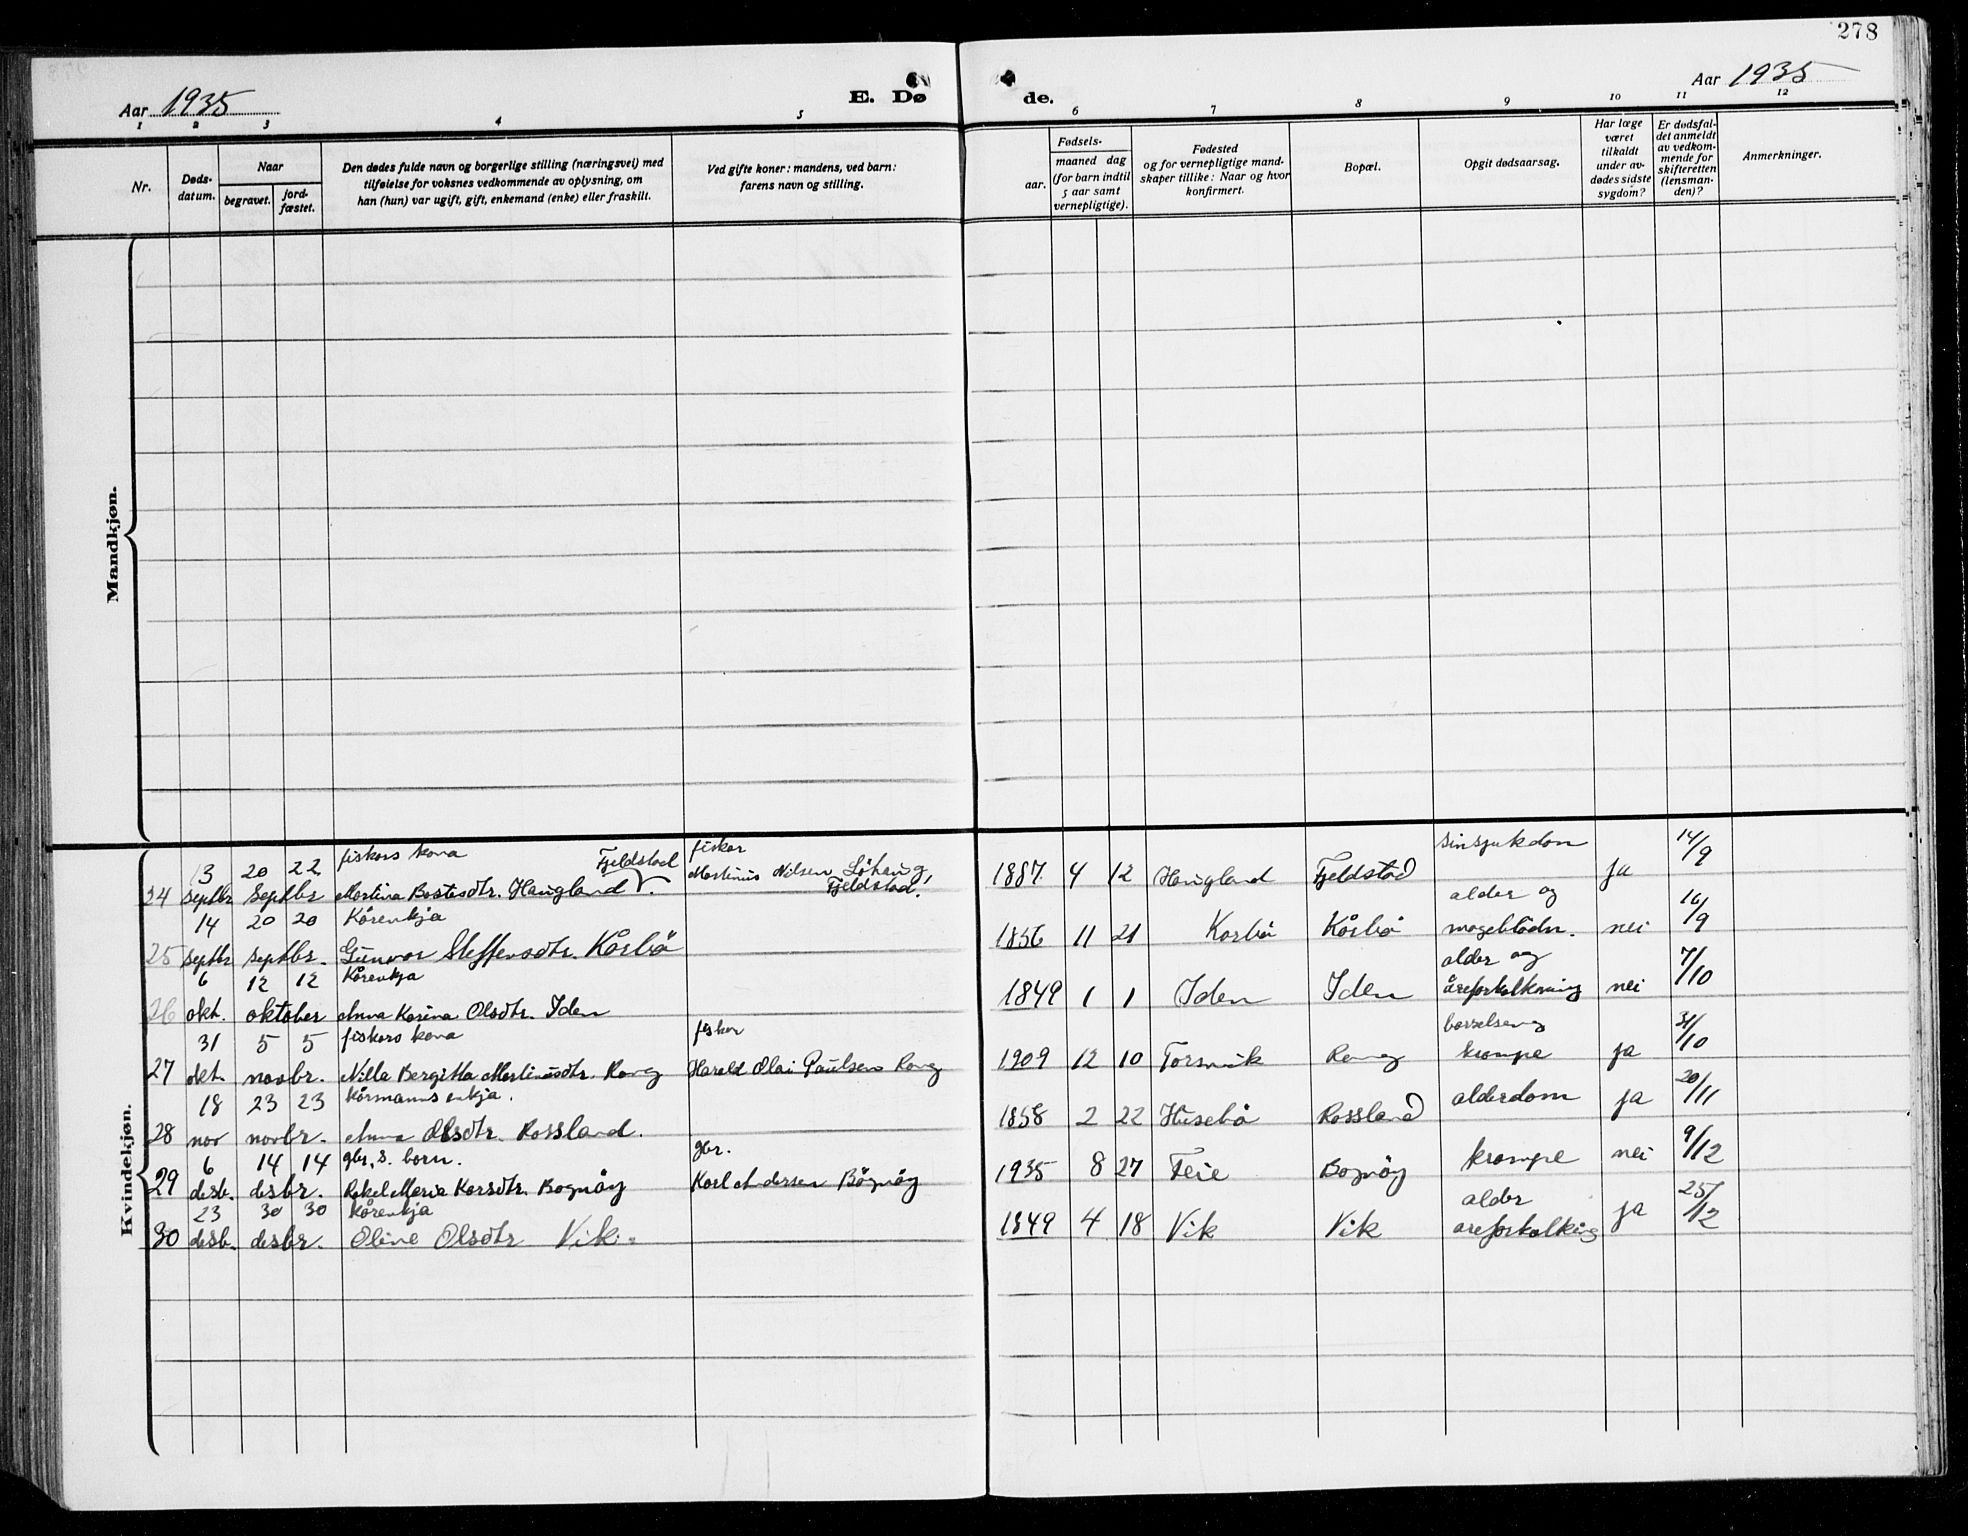 278
Aar 1935
E. Dø
de.
Aar 1935
1 2 3 4 5 6 7 8 9 10 11 12
Nr.
Døds-
datum.
Naar
begravet.
jord-
fæstet.
Den dødes fulde navn og borgerlige stilling (næringsvei) med
tilføielse for voksnes vedkommende av oplysning, om
han (hun) var ugift, gift, enkemand (enke) eller fraskilt.
Ved gifte koner: mandens, ved barn:
farens navn og stilling.
Fødsels-
aar.
maaned dag
(for barn indtil
5 aar samt
vernepligtige).
Fødested
og for vernepligtige mand-
skaper tillike: Naar og hvor
konfirmert.
Bopæl.
Opgit dødsaarsag.
Har læge
været
tilkaldt
under av-
dødes sidste
sygdom?
Er dødsfal-
det anmeldt
av vedkom-
mende for
skifteretten
(lensman-
den)?
Anmerkninger.
Mandkjøn.
Kvindekjøn.
13 20 22 fiskars kona Fjeldstad fiskar sinsjukdom 14/9
24 septbr septbr Martina Bastesdtr. Haugland Martinus Nilsen Fjeldstad 1887 4 12 Haugland Fjeldstad ja
14 20 20 Kårenkja alder og 16/9
25 septbr septbr. Gunvor Steffensdtr. Kårbö 1856 11 21 Karbö Kårbö mageblödn. nei
6 12 12 Kårenkja alder og 7/10
26 okt. oktober Anna Karina Olsdtr. Iden 1849 1 1 Iden Iden åreforkalkning nei
31 5 5 fiskars kona fiskar barselseng 31/10
27 okt. novbr. Nilla Bergitta Martinusdtr. Rong Harald Olai Paulsen Rong 1909 12 10 Torsvik Rong krampe ja
18 23 23 Kårmanns enkja. 20/11
28 nov novbr. Anna Olsdtr. Rossland. 1858 2 22 Husebö Rossland alderdom ja
6 14 14 gbr. s. born. gbr. 9/12
29 desb. desbr. Rakel Maria Karsdtr. Bognöy Karl Andersen Bögnöy 1935 8 27 Feie Bognöy krampe nei
23 30 30 Kårenkja alder 25/12
30 desb. desbr. Oline Olsdtr Vik. 1849 4 18 Vik Vik areforkalking ja